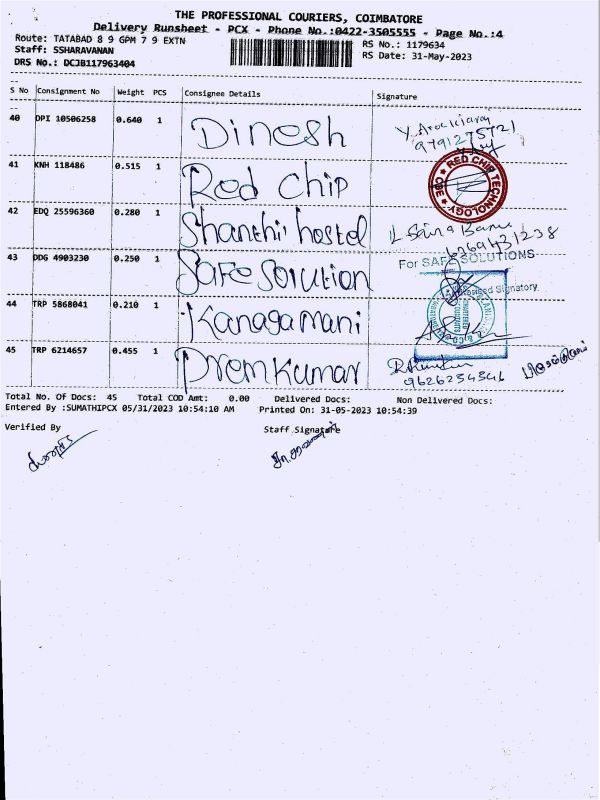 THE PROFESSIONAL COURIERS, COIMBATORE
Delivery Runsheet - PCX - Phone No.:0422-3505555 - Page No.:4
Route: TATABAD 8 9 GPM 7 9 EXTN
RS No.: 1179634
Staff: SSHARAVANAN
RS Date: 31-May-2023
DRS No.: DCJB117963404
S No Consignment No Weight PCS Consignee Details Signature
40 DPI 10506258 0.640 1 Dinesh
9791275721
41 KNH 118486 0.515 1 Red Chip
RED CHIP TECHNOLOGY
CBE
42 EDQ 25596360 0.280 1 Shanthi hostel
43 DDG 4903230 0.250 1 Safe Solution
For SAFE SOLUTIONS
Authorised Signatory
44 TRP 5868041 0.210 1 Kanagamani
45 TRP 6214657 0.455 1 Premkumar
9626254546
Total No. Of Docs: 45 Total COD Amt: 0.00 Delivered Docs: Non Delivered Docs:
Entered By :SUMATHIPCX 05/31/2023 10:54:10 AM Printed On: 31-05-2023 10:54:39
Verified By Staff Signature